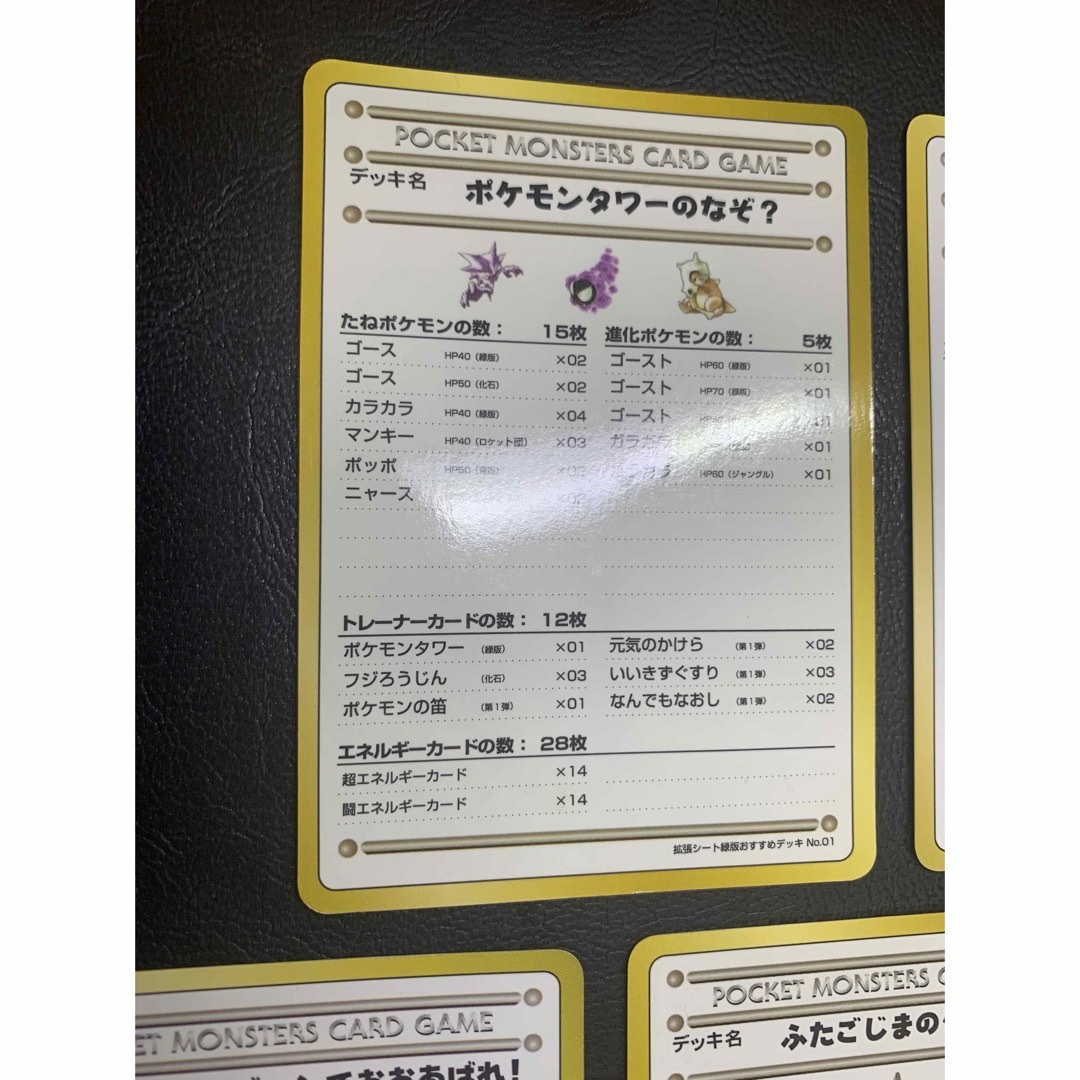 POCKET MONSTERS CARD GAME
デッキ名 ポケモンタワーのなぞ？
たねポケモンの数： 15枚
ゴース HP40（緑版） ×02
ゴース HP50（化石） ×02
カラカラ HP40（緑版） ×04
マンキー HP40（ロケット団） ×03
ポッポ HP50
ニャース ×02
進化ポケモンの数： 5枚
ゴースト HP60（緑版） ×01
ゴースト HP70（緑版） ×01
ゴースト ×01
ガラガラ ×01
HP60（ジャングル） ×01
トレーナーカードの数： 12枚
ポケモンタワー （緑版） ×01
フジろうじん （化石） ×03
ポケモンの笛 （第1弾） ×01
元気のかけら （第1弾） ×02
いいきずぐすり （第1弾） ×03
なんでもなおし （第1弾） ×02
エネルギーカードの数： 28枚
超エネルギーカード ×14
闘エネルギーカード ×14
拡張シート緑版おすすめデッキ No.01
ET MONSTERS CARD GAME
ておおあばれ！
POCKET MONSTERS C
デッキ名 ふたごじまの